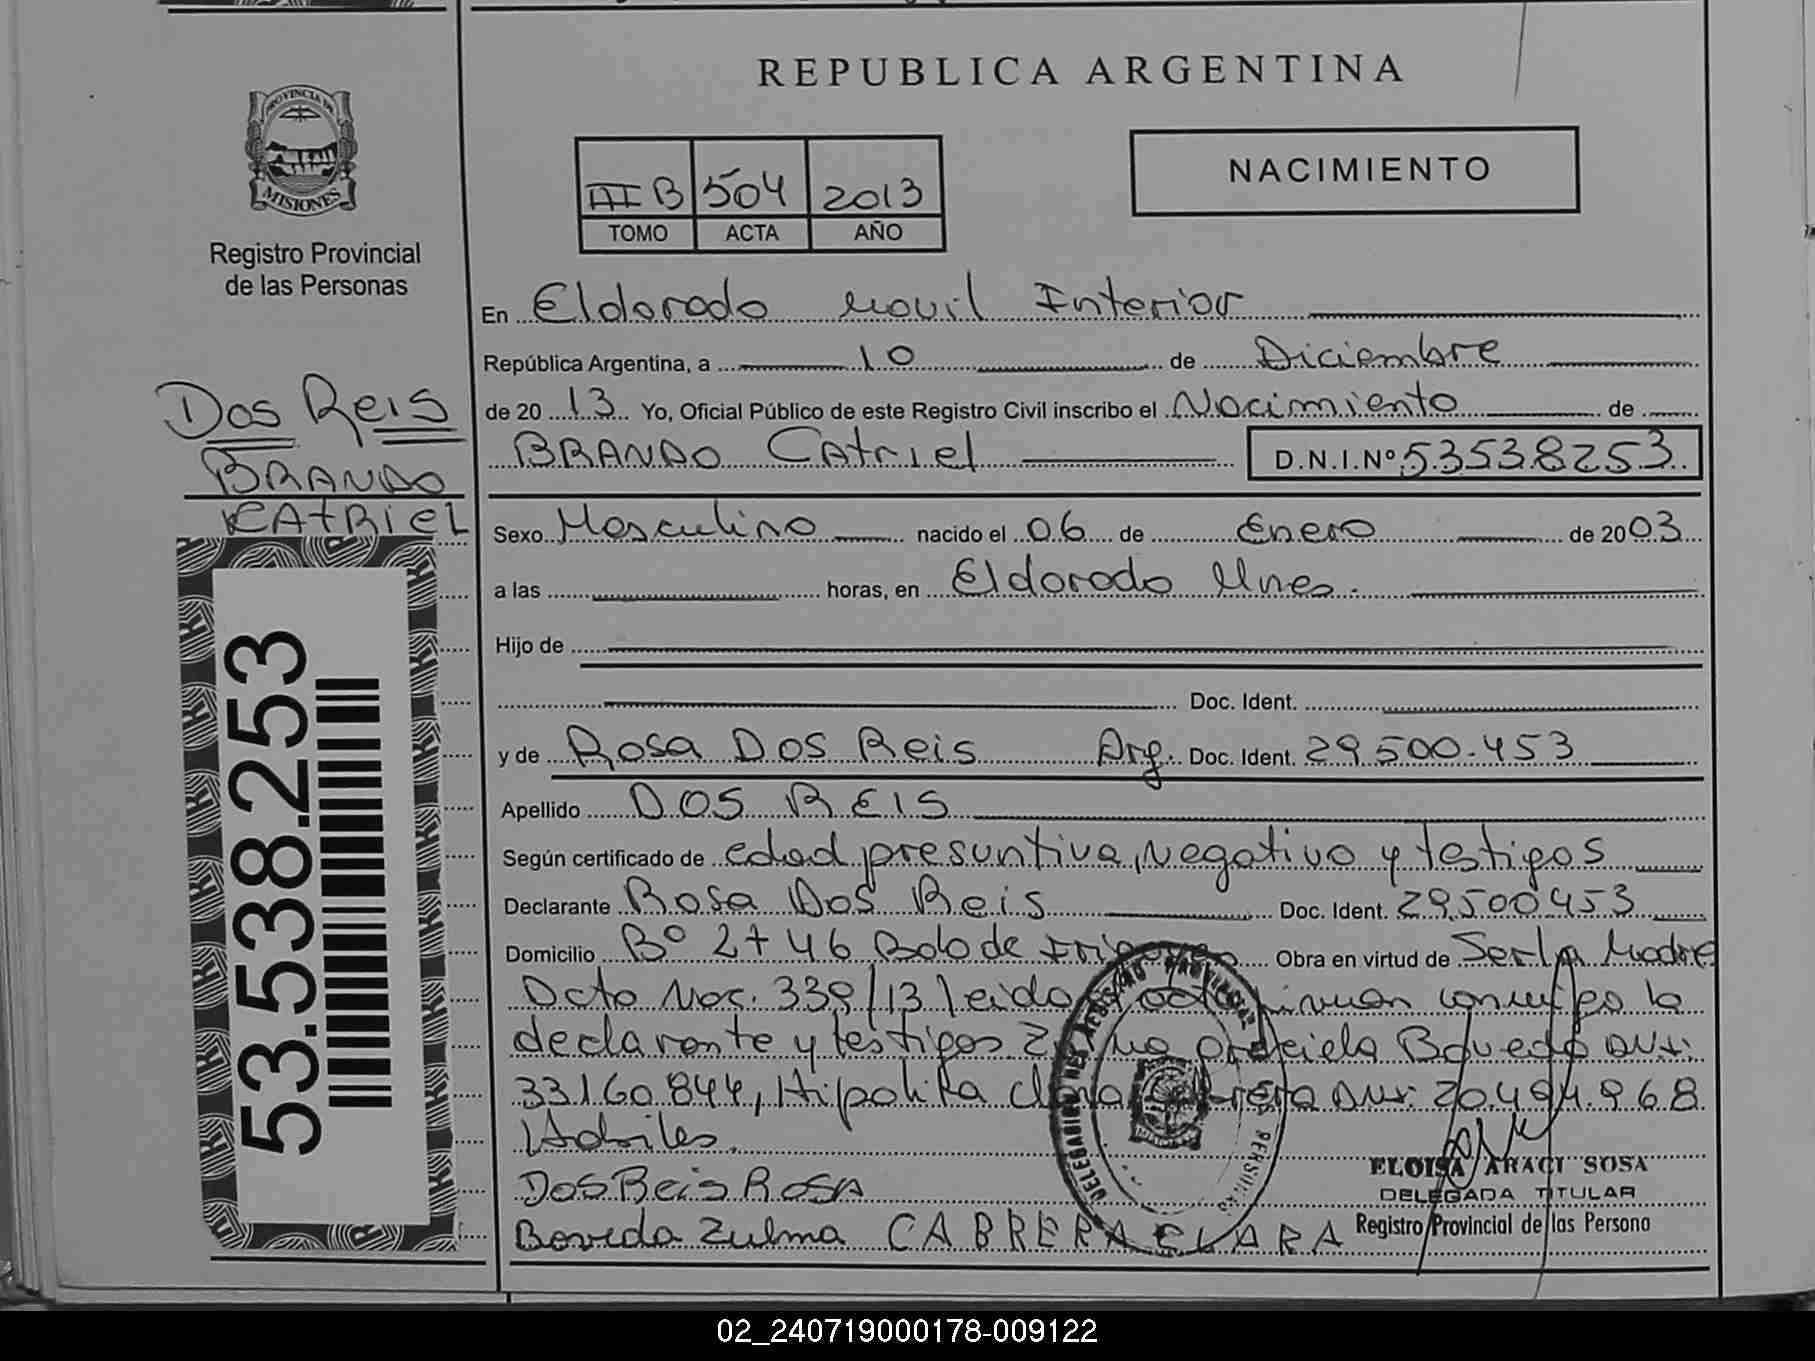 REPUBLICA ARGENTINA
PROVINCIA DE
MISIONES
Registro Provincial
de las Personas
B 504 2013
TOMO ACTA AÑO
NACIMIENTO
En Eldorado Movil Interior
República Argentina, a 10 de Diciembre
de 20 13 Yo, Oficial Público de este Registro Civil inscribo el Nacimiento de
BRANDO CAtriel D.N.I.Nº 53538253
Dos Reis
BRANDO
CAtRiEL
53.538.253
Sexo Masculino nacido el 06 de Enero de 2003
a las horas, en Eldorado Mnes.
Hijo de
Doc. Ident.
y de Rosa Dos Reis Arg. Doc. Ident. 29.500.453
Apellido DOS REIS
Según certificado de edad presuntiva, Negativo y testigos
Declarante Rosa Dos Reis Doc. Ident. 29500453
Domicilio Bº 2+46 de Obra en virtud de Ser la Madre
Dcto Nac. 339/13 leida la
declarante y testigos Boveda DNI:
33160.844, Hipolita DNI: 20.494.968
Habiles.
Dos Reis ROSA
Boveda Zulma CABRERA CLARA
ELOISA ARACI SOSA
DELEGADA TITULAR
Registro Provincial de las Persona
02_240719000178-009122